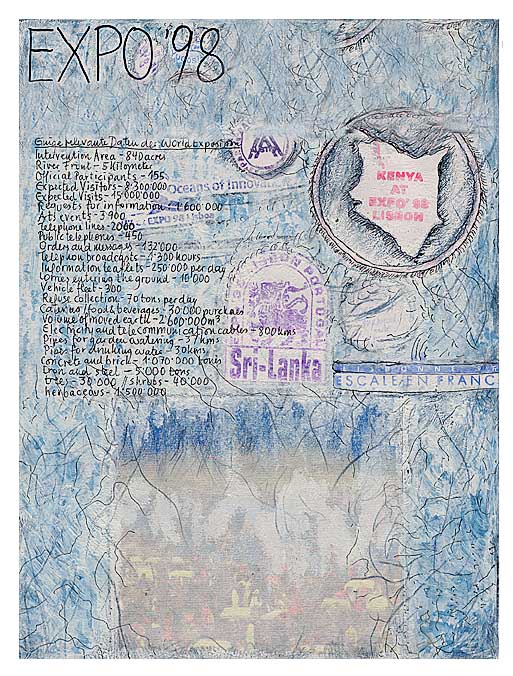 EXPO'98
Einige relevante Daten des World Exposition
Intervention Area - 840 acres
River Front - 5 Kilometer
Official Participants - 155
Expected Visitors - 8'300'000
Expected Visits - 15'000'000
Requests for information - 1'600'000
Art events - 3'900
Telephone lines - 2000
Public telephones - 450
Orders and messages - 132'000
Telephon broadcasts - 1'300 hours
Information leaflets - 250'000 per day
entering the ground - 10'000
Vehicle fleet - 300
Refuse collection - 70 tons per day
Catering food & beverages - 30'000 purchases
Volume of moved earth - 2'600'000 m³
Electricity and telecommunication cables - 800 kms
Pipes for garden watering - 37 kms
Pipes for drinking water - 30 kms
Concrete and brick - 1'070'000 tons
Iron and steel - 5'000 tons
trees - 30'000 / shrubs - 40'000
herbaceous - 1'500'000
Oceans of Innovat
EXPO 98 Lisboa
KENYA
AT
EXPO'98
LISBON
LISBON PORTUGAL
Sri-Lanka
ESCALE EN FRANC